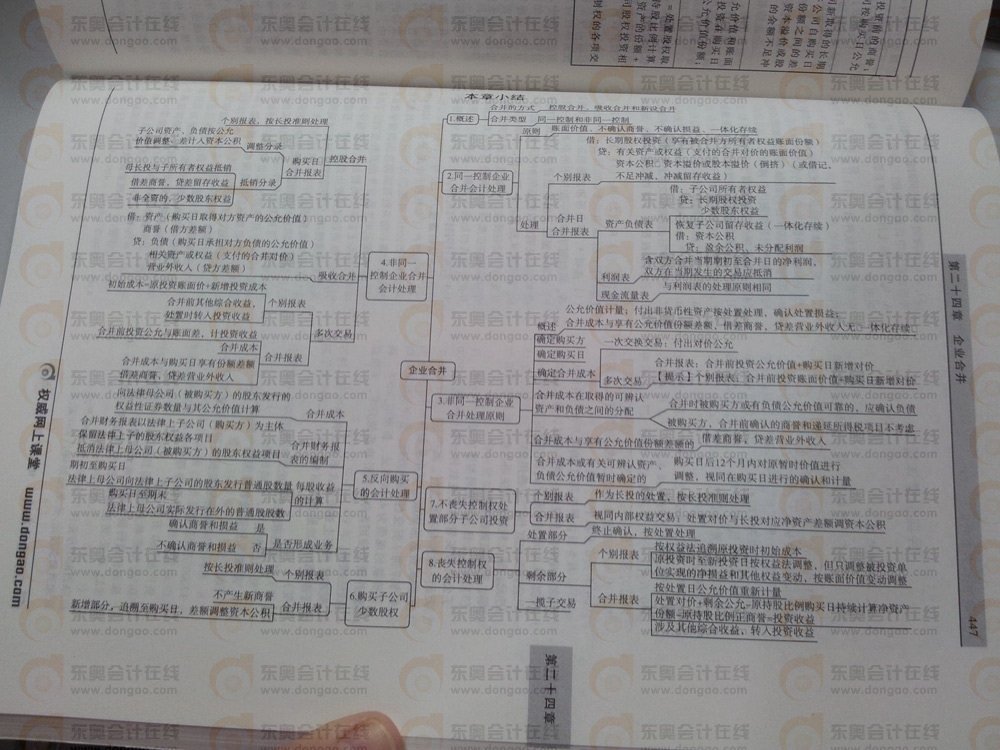 本章小结
企业合并
1.概述
合并的方式
控股合并、吸收合并和新设合并
合并类型
同一控制和非同一控制
2.同一控制企业
合并会计处理
原则
账面价值、不确认商誉、不确认损益、一体化存续
处理
个别报表
借：长期股权投资（享有被合并方所有者权益账面份额）
贷：有关资产或权益（支付的合并对价的账面价值）
资本公积：资本溢价或股本溢价（倒挤）（或借记，
不足冲减，冲减留存收益）
合并日
合并报表
资产负债表
借：子公司所有者权益
贷：长期股权投资
少数股东权益
恢复子公司留存收益（一体化存续）
借：资本公积
贷：盈余公积、未分配利润
利润表
含双方合并当期期初至合并日的净利润，
双方在当期发生的交易应抵消
现金流量表
与利润表的处理原则相同
3.非同一控制企业
合并处理原则
概述
公允价值计量；付出非货币性资产按处置处理，确认处置损益；
合并成本与享有公允价值份额差额，借差商誉，贷差营业外收入无一体化存续
确定购买方
确定购买日
确定合并成本
一次交换交易：付出对价公允
多次交易
合并报表：合并前投资公允价值+购买日新增对价
【提示】个别报表：合并前投资账面价值+购买日新增对价
合并成本在取得的可辨认
资产和负债之间的分配
合并时被购买方或有负债公允价值可靠的，应确认负债
被购买方，合并前确认的商誉和递延所得税项目不考虑
合并成本与享有公允价值份额差额的
借差商誉，贷差营业外收入
合并成本或有关可辨认资产、
负债公允价值暂时确定的
购买日后12个月内对原暂时价值进行
调整，视同在购买日进行的确认和计量
4.非同一
控制企业合并
会计处理
控股合并
购买日
合并报表
个别报表，按长投准则处理
调整分录
子公司资产、负债按公允
价值调整、差计入资本公积
抵销分录
母长投与子所有者权益抵销
借差商誉，贷差留存收益
非全资的，少数股东权益
吸收合并
借：资产（购买日取得对方资产的公允价值）
商誉（借方差额）
贷：负债（购买日承担对方负债的公允价值）
相关资产或权益（支付的合并对价）
营业外收入（贷方差额）
多次交易
个别报表
初始成本=原投资账面价+新增投资成本
合并前其他综合收益，
处置时转入投资收益
合并报表
合并前投资公允与账面差，计投资收益
合并成本
合并成本与购买日享有份额差额
借差商誉，贷差营业外收入
5.反向购买
的会计处理
合并成本
向法律母公司（被购买方）的股东发行的
权益性证券数量与其公允价值计算
合并财务报
表的编制
合并财务报表以法律上子公司（购买方）为主体
保留法律上子的股东权益各项目
抵消法律上母公司（被购买方）的股东权益项目
每股收益
的计算
期初至购买日
法律上母公司向法律上子公司的股东发行普通股数量
购买日至期末
法律上母公司实际发行在外的普通股股数
是否形成业务
确认商誉和损益 是
不确认商誉和损益 否
6.购买子公司
少数股权
个别报表
按长投准则处理
合并报表
不产生新商誉
新增部分，追溯至购买日，差额调整资本公积
7.不丧失控制权处
置部分子公司投资
个别报表
作为长投的处置，按长投准则处理
合并报表
视同内部权益交易：处置对价与长投对应净资产差额调资本公积
8.丧失控制权
的会计处理
处置部分
终止确认，按处置处理
剩余部分
个别报表
按权益法追溯原投资时初始成本
原投资时至新投资日按权益法调整，但只调整被投资单
位实现的净损益和其他权益变动，按账面价值变动调整
合并报表
按处置日公允价值重新计量
处置对价+剩余公允-原持股比例购买日持续计算净资产
份额-原持股比例正商誉=投资收益
涉及其他综合收益，转入投资收益
一揽子交易
第二十四章 企业合并
447
第二十四章
权威网上课堂 www.dongao.com
东奥会计在线
www.dongao.com